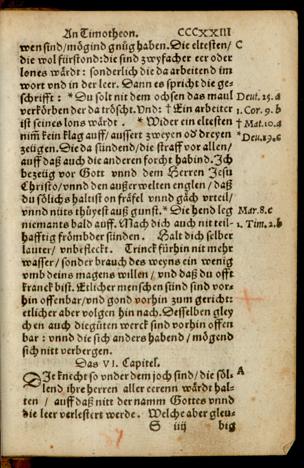 An Timotheon. CCCXXIII
wen sind/mögind gnůg haben. Die eltesten/ C
die wol fürstond: die sind zwyfacher eer oder
lones wärdt: sonderlich die da arbeitend im
wort vnd in der leer. Dann es spricht die ge-
schrifft: * Du solt nit dem ochsen das maul Deut. 25. a
verkörben der da tröscht. Vnd: † Ein arbeiter 1. Cor. 9. b
ist seines lons wärdt. * Wider ein eltesten † Mat. 10. a
nim̃ kein klag auff/ ausser zweyen od dreyen * Deu. 19. c
zeügen. Die da sündend/ die straff vor allen/
auff daß auch die anderen forcht habind. Ich
bezeüg vor Gott vnnd dem Herren Jesu
Christo/ vnnd den außerwelten englen/ daß
du sölichs haltist on fräfel vnnd gäch vrteil/
vnnd nüts thüyest auß gunst. * Die hend leg Mar. 8. c
niemants bald auff. Mach dich auch nit teil- 1. Tim. 2. b
hafftig frömbder sünden. Halt dich selber
lauter/ vnbefleckt. Trinck fürhin nit mehr
wasser/ sonder brauch des weyns ein wenig
vmb deins magens willen/ vnd daß du offt
kranck bist. Etlicher menschen sünd sind vor-
hin offenbar/ vnd gond vorhin zum gericht:
etlicher aber volgen hin nach. Desselben gley
chen auch die gůten werck sind vorhin offen
bar: vnnd die sich anders habend/ mögend
sich nit verbergen.
Das VI. Capitel.
DIe knecht so vnder dem joch sind/ die söl- A
lend ihre herren aller eerenn wärdt hal-
ten/ auff daß nit der namm Gottes vnnd
die leer verlestert werde. Welche aber gleu-
S iiij big